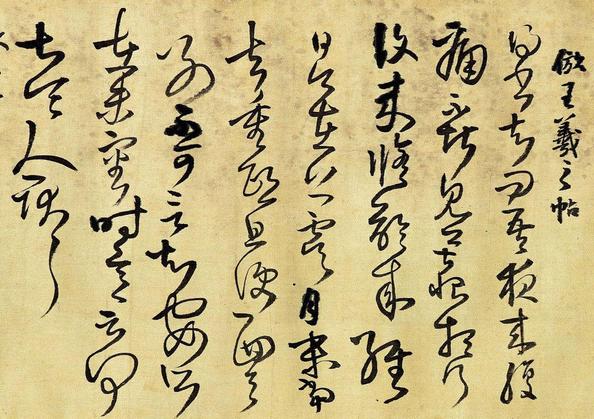 倣王羲之帖
得書知問吾夜來腹
痛不堪見卿甚恨想行
復來脩齡來經
日今在上虞月末當
去重熙旦便西與
別不可言知安所
在未審時意云何
甚令人耿耿